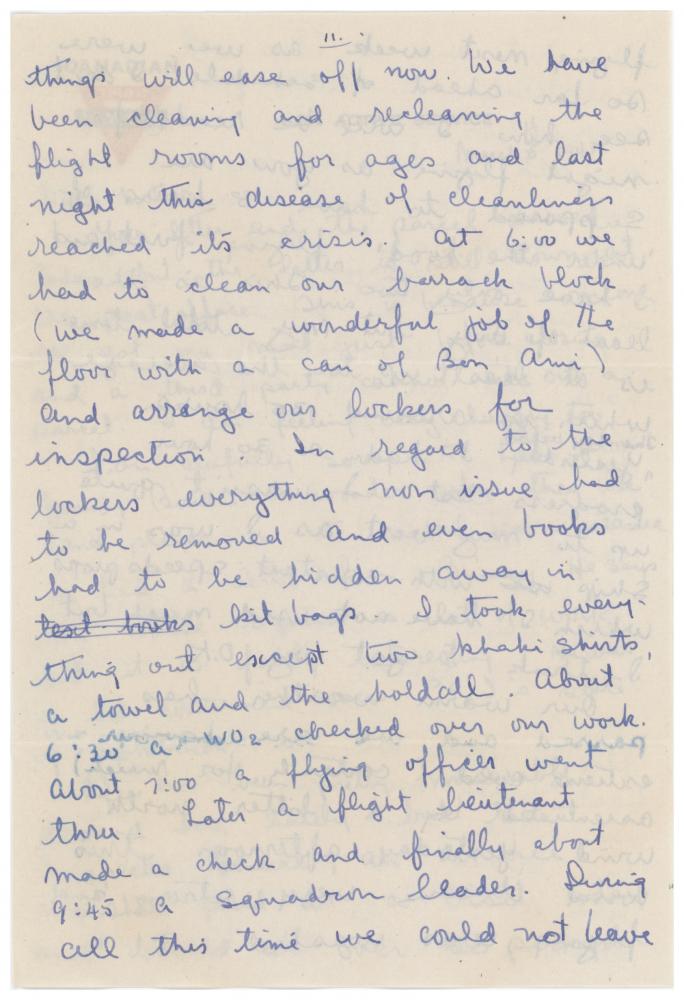 11.
things will ease off now. We have
been cleaning and recleaning the
flight rooms for ages and last
night this disease of cleanliness
reached its crisis. At 6:00 we
had to clean our barrack block
(we made a wonderful job of the
floor with a can of Bon Ami)
and arrange our lockers for
inspection. In regard to the
lockers everything non issue had
to be removed and even books
had to be hidden away in
text books kit bags. I took every-
thing out except two khaki shirts,
a towel and the holdall. About
6:30 a WO2 checked over our work.
About 7:00 a flying officer went
thru. Later a flight lieutenant
made a check and finally about
9:45 a Squadron leader. During
all this time we could not leave